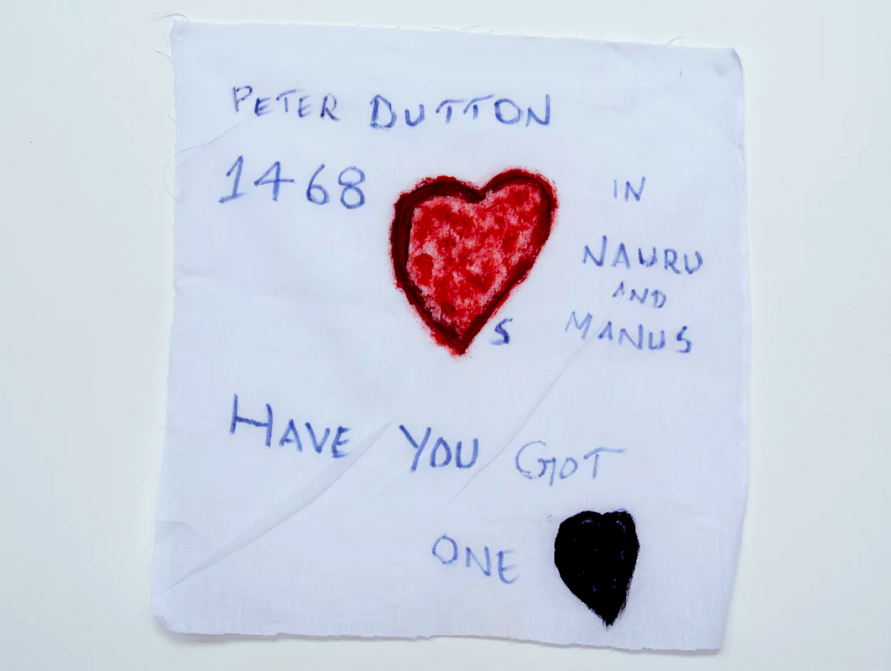 PETER DUTTON
1468 S IN
NAURU
AND
MANUS
HAVE YOU GOT
ONE